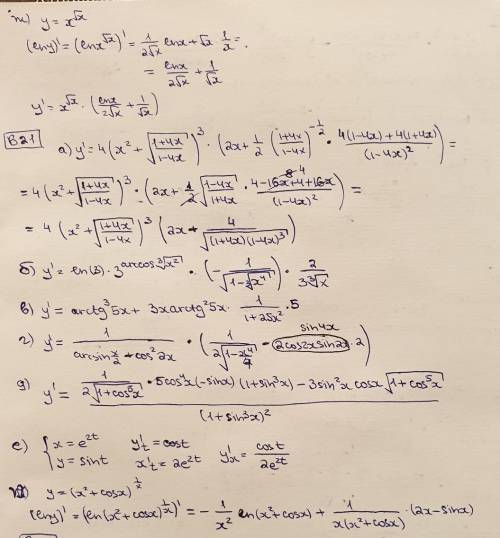 ж) y = x^√x
(ln y)' = (ln x^√x)' = 1/(2√x) ln x + √x · 1/x =
= ln x/(2√x) + 1/√x
y' = x^√x · (ln x/(2√x) + 1/√x)
В21
а) y' = 4(x² + √((1+4x)/(1-4x)))³ · (2x + 1/2 ((1+4x)/(1-4x))^(-1/2) · (4(1-4x)+4(1+4x))/(1-4x)²) =
= 4(x² + √((1+4x)/(1-4x)))³ · (2x + 1/2 √((1-4x)/(1+4x)) · (4-16x+4+16x)/(1-4x)²) =
= 4(x² + √((1+4x)/(1-4x)))³ (2x + 4/√((1+4x)(1-4x)³))
б) y' = ln(3) · 3^(arccos ∛x²) · (-1/√(1-∛x⁴)) · 2/(3∛x)
в) y' = arctg³5x + 3x arctg²5x · 1/(1+25x²) · 5
г) y' = 1/(arcsin x/2 + cos²2x) · (1/(2√(1-x²/4)) - 2cos2x sin2x · 2) sin4x
д) y' = (1/(2√(1+cos⁵x)) · 5cos⁴x(-sinx)(1+sin³x) - 3sin²x cosx √(1+cos⁵x))/(1+sin³x)²
е) { x = e^2t y't = cost y'x = cost/(2e^2t)
y = sint x't = 2e^2t
ж) y = (x²+cosx)^(1/x)
(ln y)' = (ln(x²+cosx)^(1/x))' = -1/x² ln(x²+cosx) + 1/(x(x²+cosx)) · (2x-sinx)